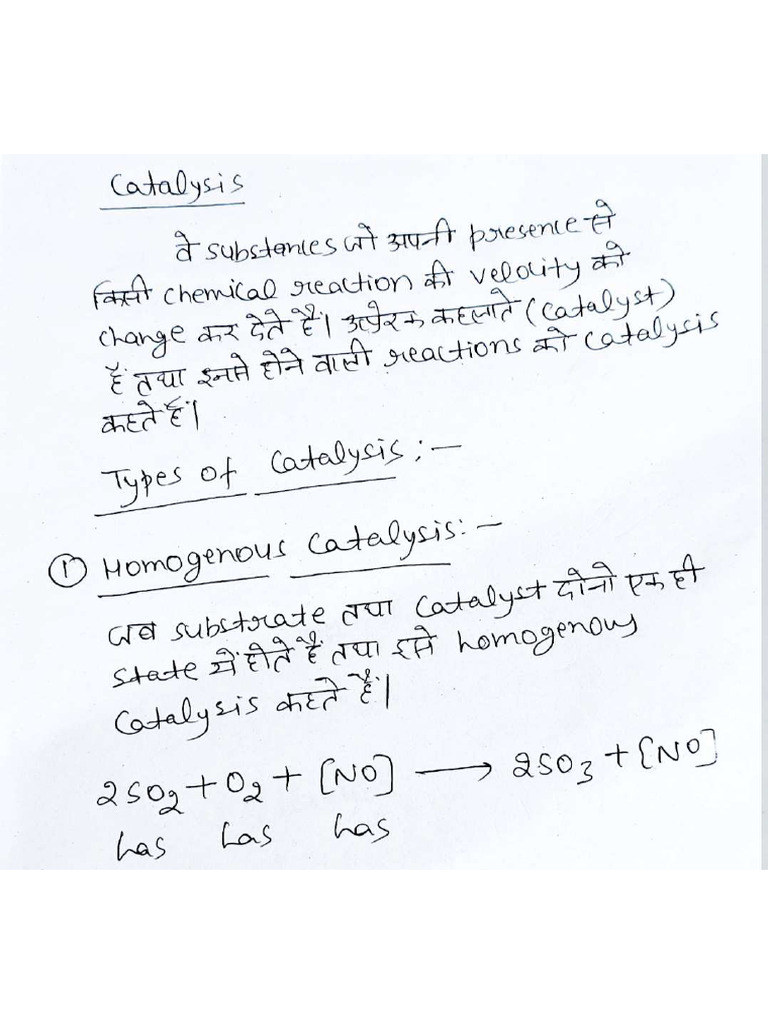 Catalysis
वे substances जो अपनी presence से
किसी chemical reaction की velocity को
change कर देते हैं। उत्प्रेरक कहलाते (catalyst)
हैं तथा इनसे होने वाली reactions को catalysis
कहते हैं।
Types of Catalysis :-
① Homogenous Catalysis:-
जब substrate तथा Catalyst दोनो एक ही
state में होते हैं तथा इसे homogenous
Catalysis कहते हैं।
2SO₂ + O₂ + [NO] ⟶ 2SO₃ + [NO]
has has has